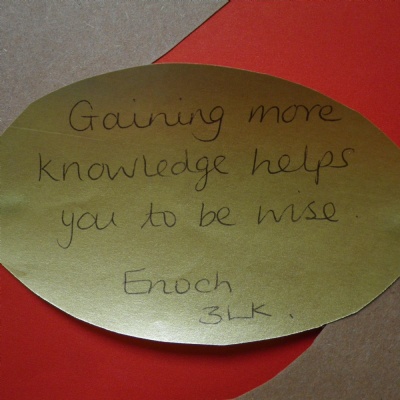 Gaining more
knowledge helps
you to be wise.
Enoch
3LK.